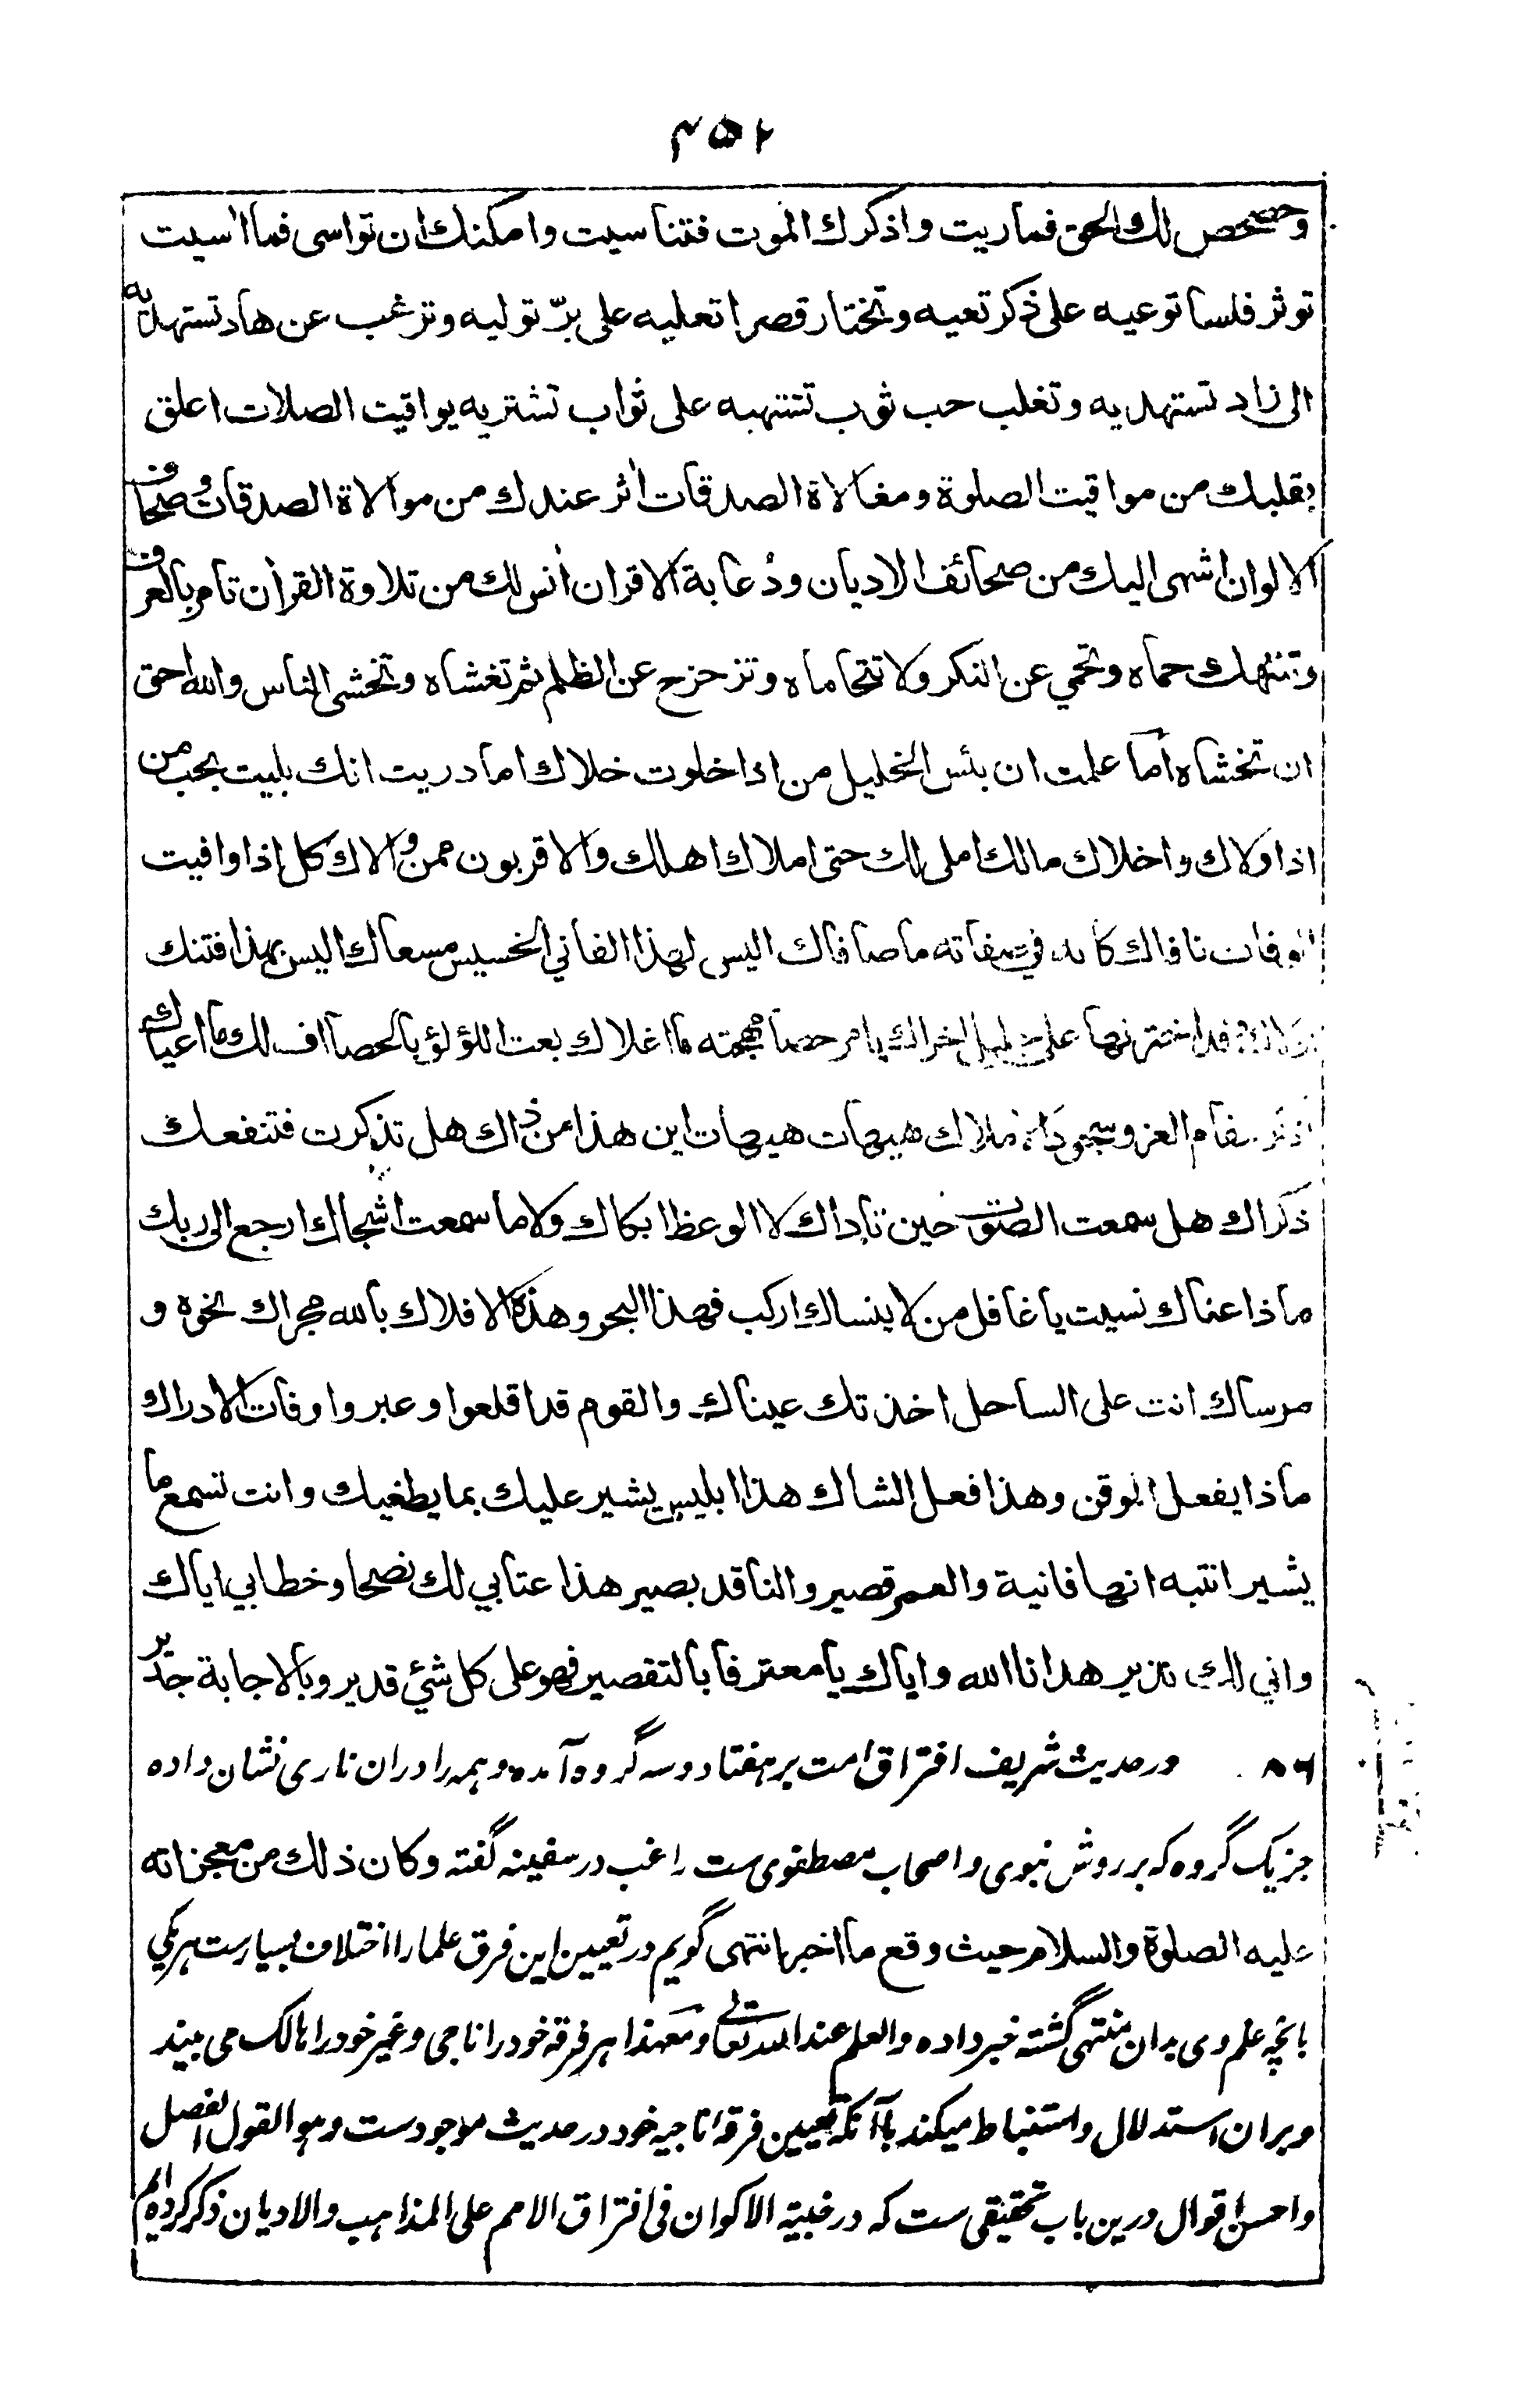 ۴۵۲
وحصحص لك الحق فماريت واذكرك الموت فتناسيت وامكنك ان تواسى فما اٰسيت
توثر فلسا توعيه على ذكر تعيه وتختار قصرا تعليه على برّ توليه وترغب عن هاد تستهديه
الى زاد تستهديه وتغلب حب ثوب تشتهيه على ثواب تشتريه يواقيت الصلات اعلق
بقلبك من مواقيت الصلوة ومغالاة الصدقات اٰثر عندك من موالاة الصدقات وصحاف
الالوان اشهى اليك من صحائف الاديان ودُعابة الاقران اٰنس لك من تلاوة القراٰن تامر بالعرف
وتنتهك حماه وتحمي عن النكر ولا تتحاماه وتزحزح عن الظلم ثم تغشاه وتخشى الناس والله احق
ان تخشاه اما علمت ان بئس الخليل من اذا خلوت خلاك اما دريت انك بليت بحب من
اذا ولاك واخلاك مالك املى لك حتى املاك اهلك والاقربون ممن والاك كل اذا وافيت
نافاك في صفاته ما صافاك اليس لهذا الفاني الخسيس مسعاك اليس بهذا فتنك
على مهجته ما اغلاك بعت اللؤلؤ بالحصا اف لك ما اعياك
العز هيهات هيهات اين هذا من ذاك هل تذكرت فتنفعك
ذكراك وهل سمعت الصوت حين ناداك لا الوعظ ابكاك ولا ما سمعت اشجاك ارجع الى ربك
ماذا عناك نسيت يا غافل من لا ينساك اركب فهذا البحر وهذه الافلاك بالله مجراك نحوه و
مرساك انت على الساحل اخذتك عيناك والقوم قد اقلعوا وعبروا وفات الادراك
ماذا يفعل الموقن وهذا فعل الشاك هذا ابليس يشير عليك بما يطغيك وانت تسمع ما
يشير انتبه انها فانية والعمر قصير والناقد بصير هذا عتابي لك نصحا وخطابي اياك
واني لك نذير هدانا الله واياك يا معترفا بالتقصير فهو على كل شئ قدير وبالاجابة جدير
۸۶ در حدیث شریف افتراق امت بر هفتاد و سه گروه آمده و همه را دران ناری نشان داده
جز یک گروه که بر روش نبوی و اصحاب مصطفوی ست راغب در سفینه گفته وكان ذلك من معجزاته
عليه الصلوة والسلام حيث وقع ما اخبر انتهى گویم در تعیین این فرق علما را اختلاف بسیارست هر یکی
بانچه علم وی بدان منتهی گشته خبر داده والعلم عند الله تعالی و معهذا هر فرقه خود را ناجی و غیر خود را هالک می بیند
و بران استدلال و استنباط میکند با آنکه تعیین فرقهٔ ناجیه خود در حدیث موجودست وهو القول الفصل
و احسن اقوال درین باب تحقیقی ست که در خبیئة الاکوان فی افتراق الامم علی المذاهب والادیان ذکر کرده ایم